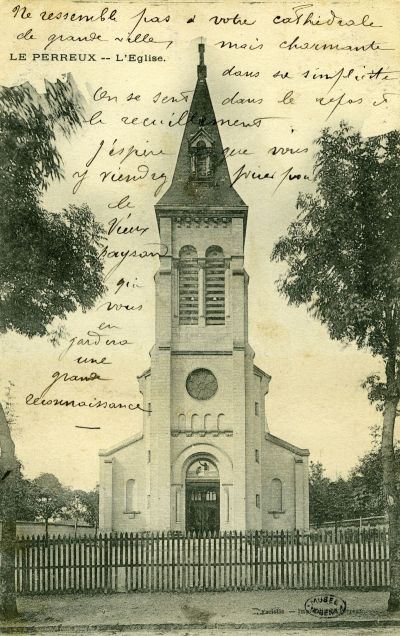 Ne ressemble pas à votre cathédrale
de grande ville, mais charmante
LE PERREUX -- L'Eglise.
dans sa simplicité
On se sent dans le repos et
le recueillement
J'éspère que vous
y viendrez prier pour
le
Vieux
paysan
qui
vous
en
gardera
une
grande
reconnaissance